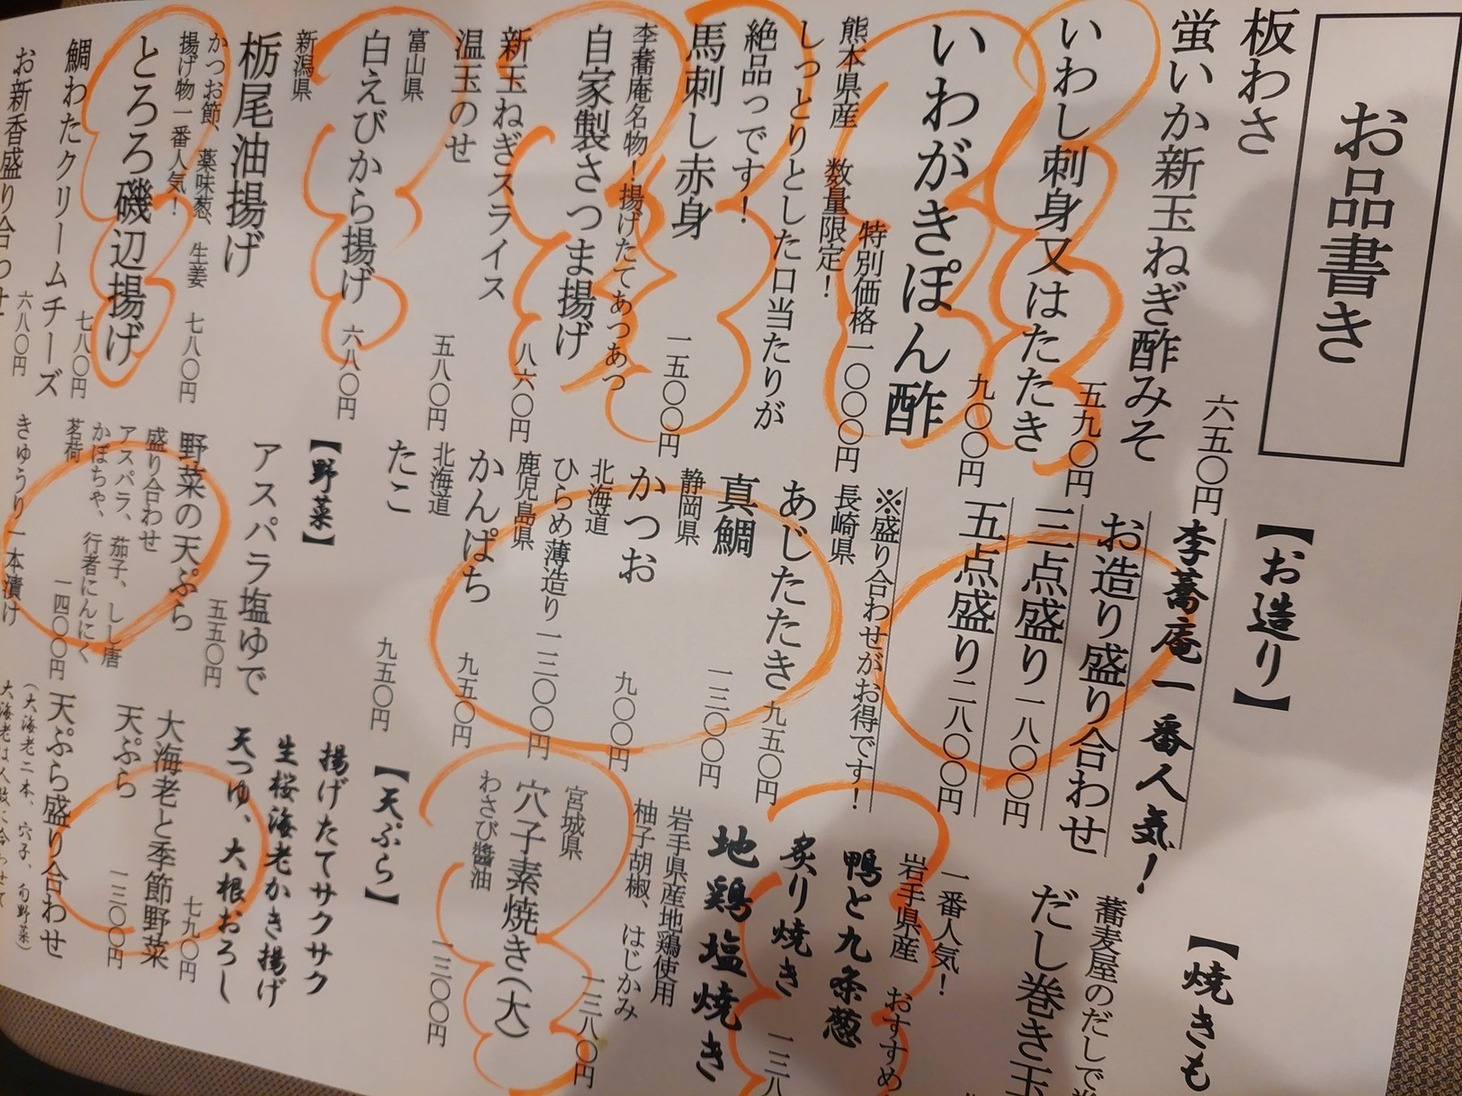 お品書き
板わさ
六五〇円
蛍いか新玉ねぎ酢みそ
五九〇円
いわし刺身又はたたき
九〇〇円
いわがきぽん酢
特別価格一〇〇〇円
熊本県産 数量限定!
しっとりとした口当たりが
絶品っです!
馬刺し赤身
一五〇〇円
李蕎庵名物!揚げたてあつあつ
自家製さつま揚げ
八六〇円
新玉ねぎスライス
温玉のせ
五八〇円
富山県
白えびから揚げ
六八〇円
新潟県
栃尾油揚げ
かつお節、薬味葱、生姜
七八〇円
揚げ物一番人気!
とろろ磯辺揚げ
七八〇円
鯛わたクリームチーズ
六八〇円
お新香盛り合わせ
【お造り】
李蕎庵一番人気!
お造り盛り合わせ
三点盛り一八〇〇円
五点盛り二八〇〇円
※盛り合わせがお得です!
長崎県
あじたたき
九五〇円
真鯛
一三〇〇円
静岡県
かつお
九〇〇円
北海道
ひらめ薄造り一三〇〇円
鹿児島県
かんぱち
九五〇円
北海道
たこ
九五〇円
【野菜】
アスパラ塩ゆで
五五〇円
野菜の天ぷら
盛り合わせ
一四〇〇円
アスパラ、茄子、しし唐
かぼちゃ、行者にんにく
茗荷
きゅうり一本漬け
【焼きも
蕎麦屋のだしで
だし巻き玉
一番人気!
岩手県産 おすすめ
鴨と九条葱
炙り焼き
一三八
地鶏塩焼き
岩手県産地鶏使用
柚子胡椒、はじかみ
一三八〇円
宮城県
穴子素焼き(大)
わさび醬油
一三〇〇円
【天ぷら】
揚げたてサクサク
生桜海老かき揚げ
天つゆ、大根おろし
七九〇円
大海老と季節野菜
天ぷら
一三〇〇円
天ぷら盛り合わせ
(大海老二本、穴子、旬野菜)